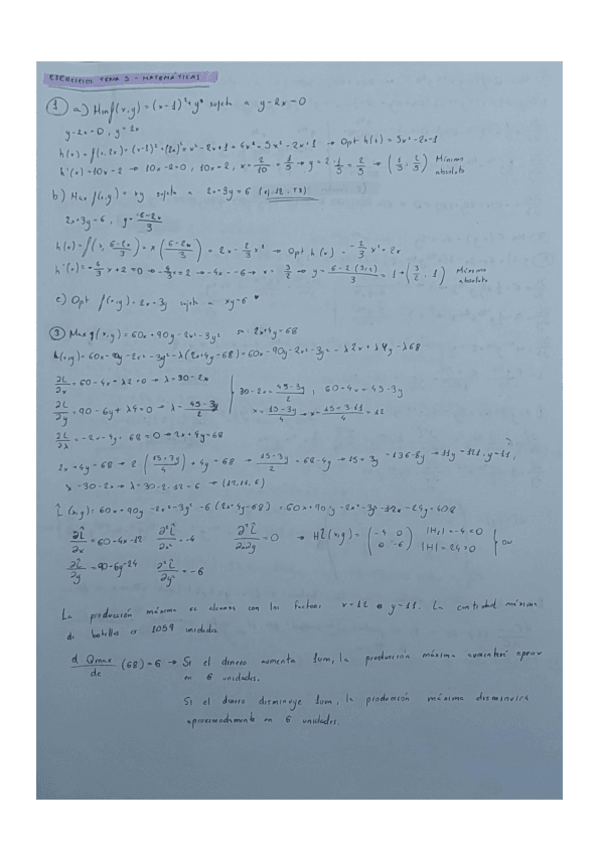 EJERCICIOS TEMA 5 - MATEMÁTICAS
① a) Min f(x,y) = (x-1)² + y² sujeta a y-2x=0
y-2x=0, y=2x
h(x) = f(x,2x) = (x-1)² + (2x)² = x²-2x+1+4x² = 5x²-2x+1 → Opt h(x) = 5x²-2x+1
h'(x) = 10x-2 → 10x-2=0, 10x=2, x= 2/10 = 1/5 → y=2·1/5 = 2/5 → (1/5, 2/5) Mínimo absoluto
b) Max f(x,y) = xy sujeta a 2x+3y=6
2x+3y=6, y=
h(x) = f(x, 6-2x/3) = x(6-2x/3) = 2x - 2/3 x² → Opt h(x) = -2/3 x² + 2x
→ y = = 1 → (3/2, 1) Máximo absoluto
c) Opt f(x,y) = 2x+3y sujeta a xy=6
③ Max q(x,y) = 60x+90y-2x²-3y² 2x+4y=68
∂L/∂x = 60-4x-λ2=0 → λ=30-2x
∂L/∂y = 90-6y+λ4=0 → λ=
∂L/∂λ = -2x-4y+68=0 → 2x+4y=68
λ=30-2x → λ=30-2·12=6 → (12,11,6)
L̂(x,y) = 60x+90y-2x²-3y²-6(2x+4y-68) = 60x+90y-2x²-3y²-12x-24y+408
∂L̂/∂x = 60-4x-12 ∂²L̂/∂x² = -4 ∂²L̂/∂x∂y = 0 → HL̂(x,y) = (-4 0 / 0 -6) |H₁|=-4<0 |H|=24>0
∂L̂/∂y = 90-6y-24 ∂²L̂/∂y² = -6
La producción máxima se alcanza con los factores x=12 e y=11. La cantidad máxima
de botellas es 1059 unidades.
d Qmax/dc (68)=6 → Si el dinero aumenta 1um, la producción máxima aumentará aprox
en 6 unidades.
Si el dinero disminuye 1um, la producción máxima disminuirá
aproximadamente en 6 unidades.